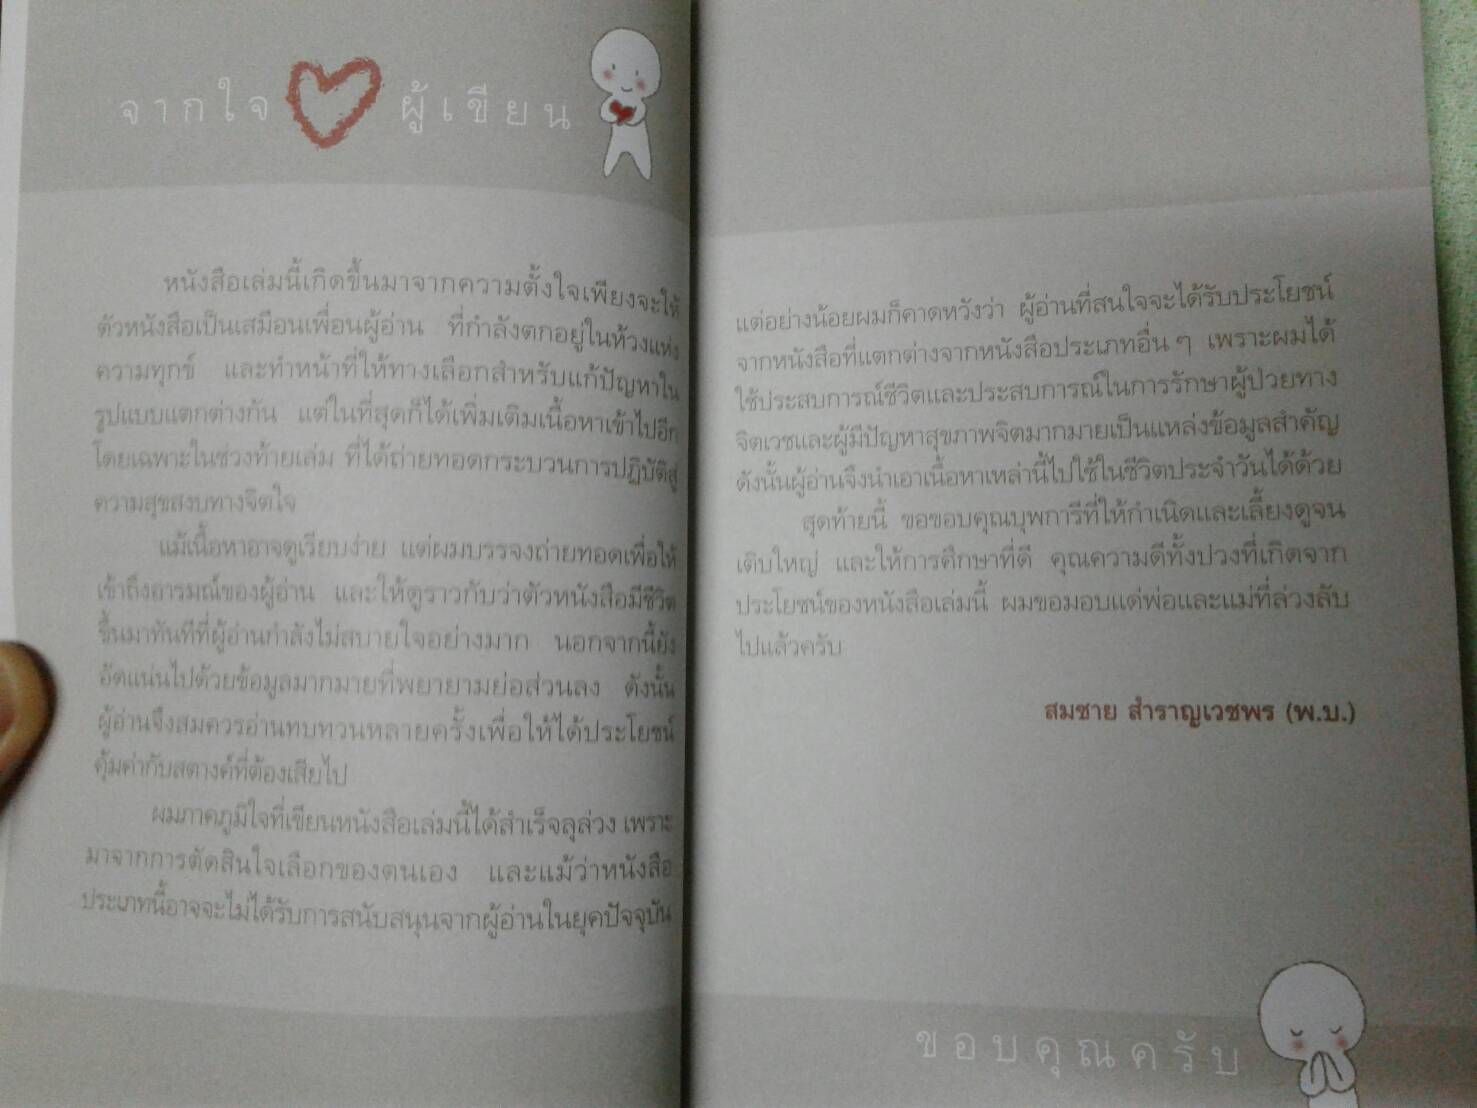 จากใจ ผู้เขียน
หนังสือเล่มนี้เกิดขึ้นมาจากความตั้งใจเพียงจะให้
ตัวหนังสือเป็นเสมือนเพื่อนผู้อ่าน ที่กำลังตกอยู่ในห้วงแห่ง
ความทุกข์ และทำหน้าที่ให้ทางเลือกสำหรับแก้ปัญหาใน
รูปแบบแตกต่างกัน แต่ในที่สุดก็ได้เพิ่มเติมเนื้อหาเข้าไปอีก
โดยเฉพาะในช่วงท้ายเล่ม ที่ได้ถ่ายทอดกระบวนการปฏิบัติสู่
ความสุขสงบทางจิตใจ
แม้เนื้อหาอาจดูเรียบง่าย แต่ผมบรรจงถ่ายทอดเพื่อให้
เข้าถึงอารมณ์ของผู้อ่าน และให้ดูราวกับว่าตัวหนังสือมีชีวิต
ขึ้นมาทันทีที่ผู้อ่านกำลังไม่สบายใจอย่างมาก นอกจากนี้ยัง
อัดแน่นไปด้วยข้อมูลมากมายที่พยายามย่อส่วนลง ดังนั้น
ผู้อ่านจึงสมควรอ่านทบทวนหลายครั้งเพื่อให้ได้ประโยชน์
คุ้มค่ากับสตางค์ที่ต้องเสียไป
ผมภาคภูมิใจที่เขียนหนังสือเล่มนี้ได้สำเร็จลุล่วง เพราะ
มาจากการตัดสินใจเลือกของตนเอง และแม้ว่าหนังสือ
ประเภทนี้อาจจะไม่ได้รับการสนับสนุนจากผู้อ่านในยุคปัจจุบัน
แต่อย่างน้อยผมก็คาดหวังว่า ผู้อ่านที่สนใจจะได้รับประโยชน์
จากหนังสือที่แตกต่างจากหนังสือประเภทอื่น ๆ เพราะผมได้
ใช้ประสบการณ์ชีวิตและประสบการณ์ในการรักษาผู้ป่วยทาง
จิตเวชและผู้มีปัญหาสุขภาพจิตมากมายเป็นแหล่งข้อมูลสำคัญ
ดังนั้นผู้อ่านจึงนำเอาเนื้อหาเหล่านี้ไปใช้ในชีวิตประจำวันได้ด้วย
สุดท้ายนี้ ขอขอบคุณบุพการีที่ให้กำเนิดและเลี้ยงดูจน
เติบใหญ่ และให้การศึกษาที่ดี คุณความดีทั้งปวงที่เกิดจาก
ประโยชน์ของหนังสือเล่มนี้ ผมขอมอบแด่พ่อและแม่ที่ล่วงลับ
ไปแล้วครับ
สมชาย สำราญเวชพร (พ.บ.)
ขอบคุณครับ